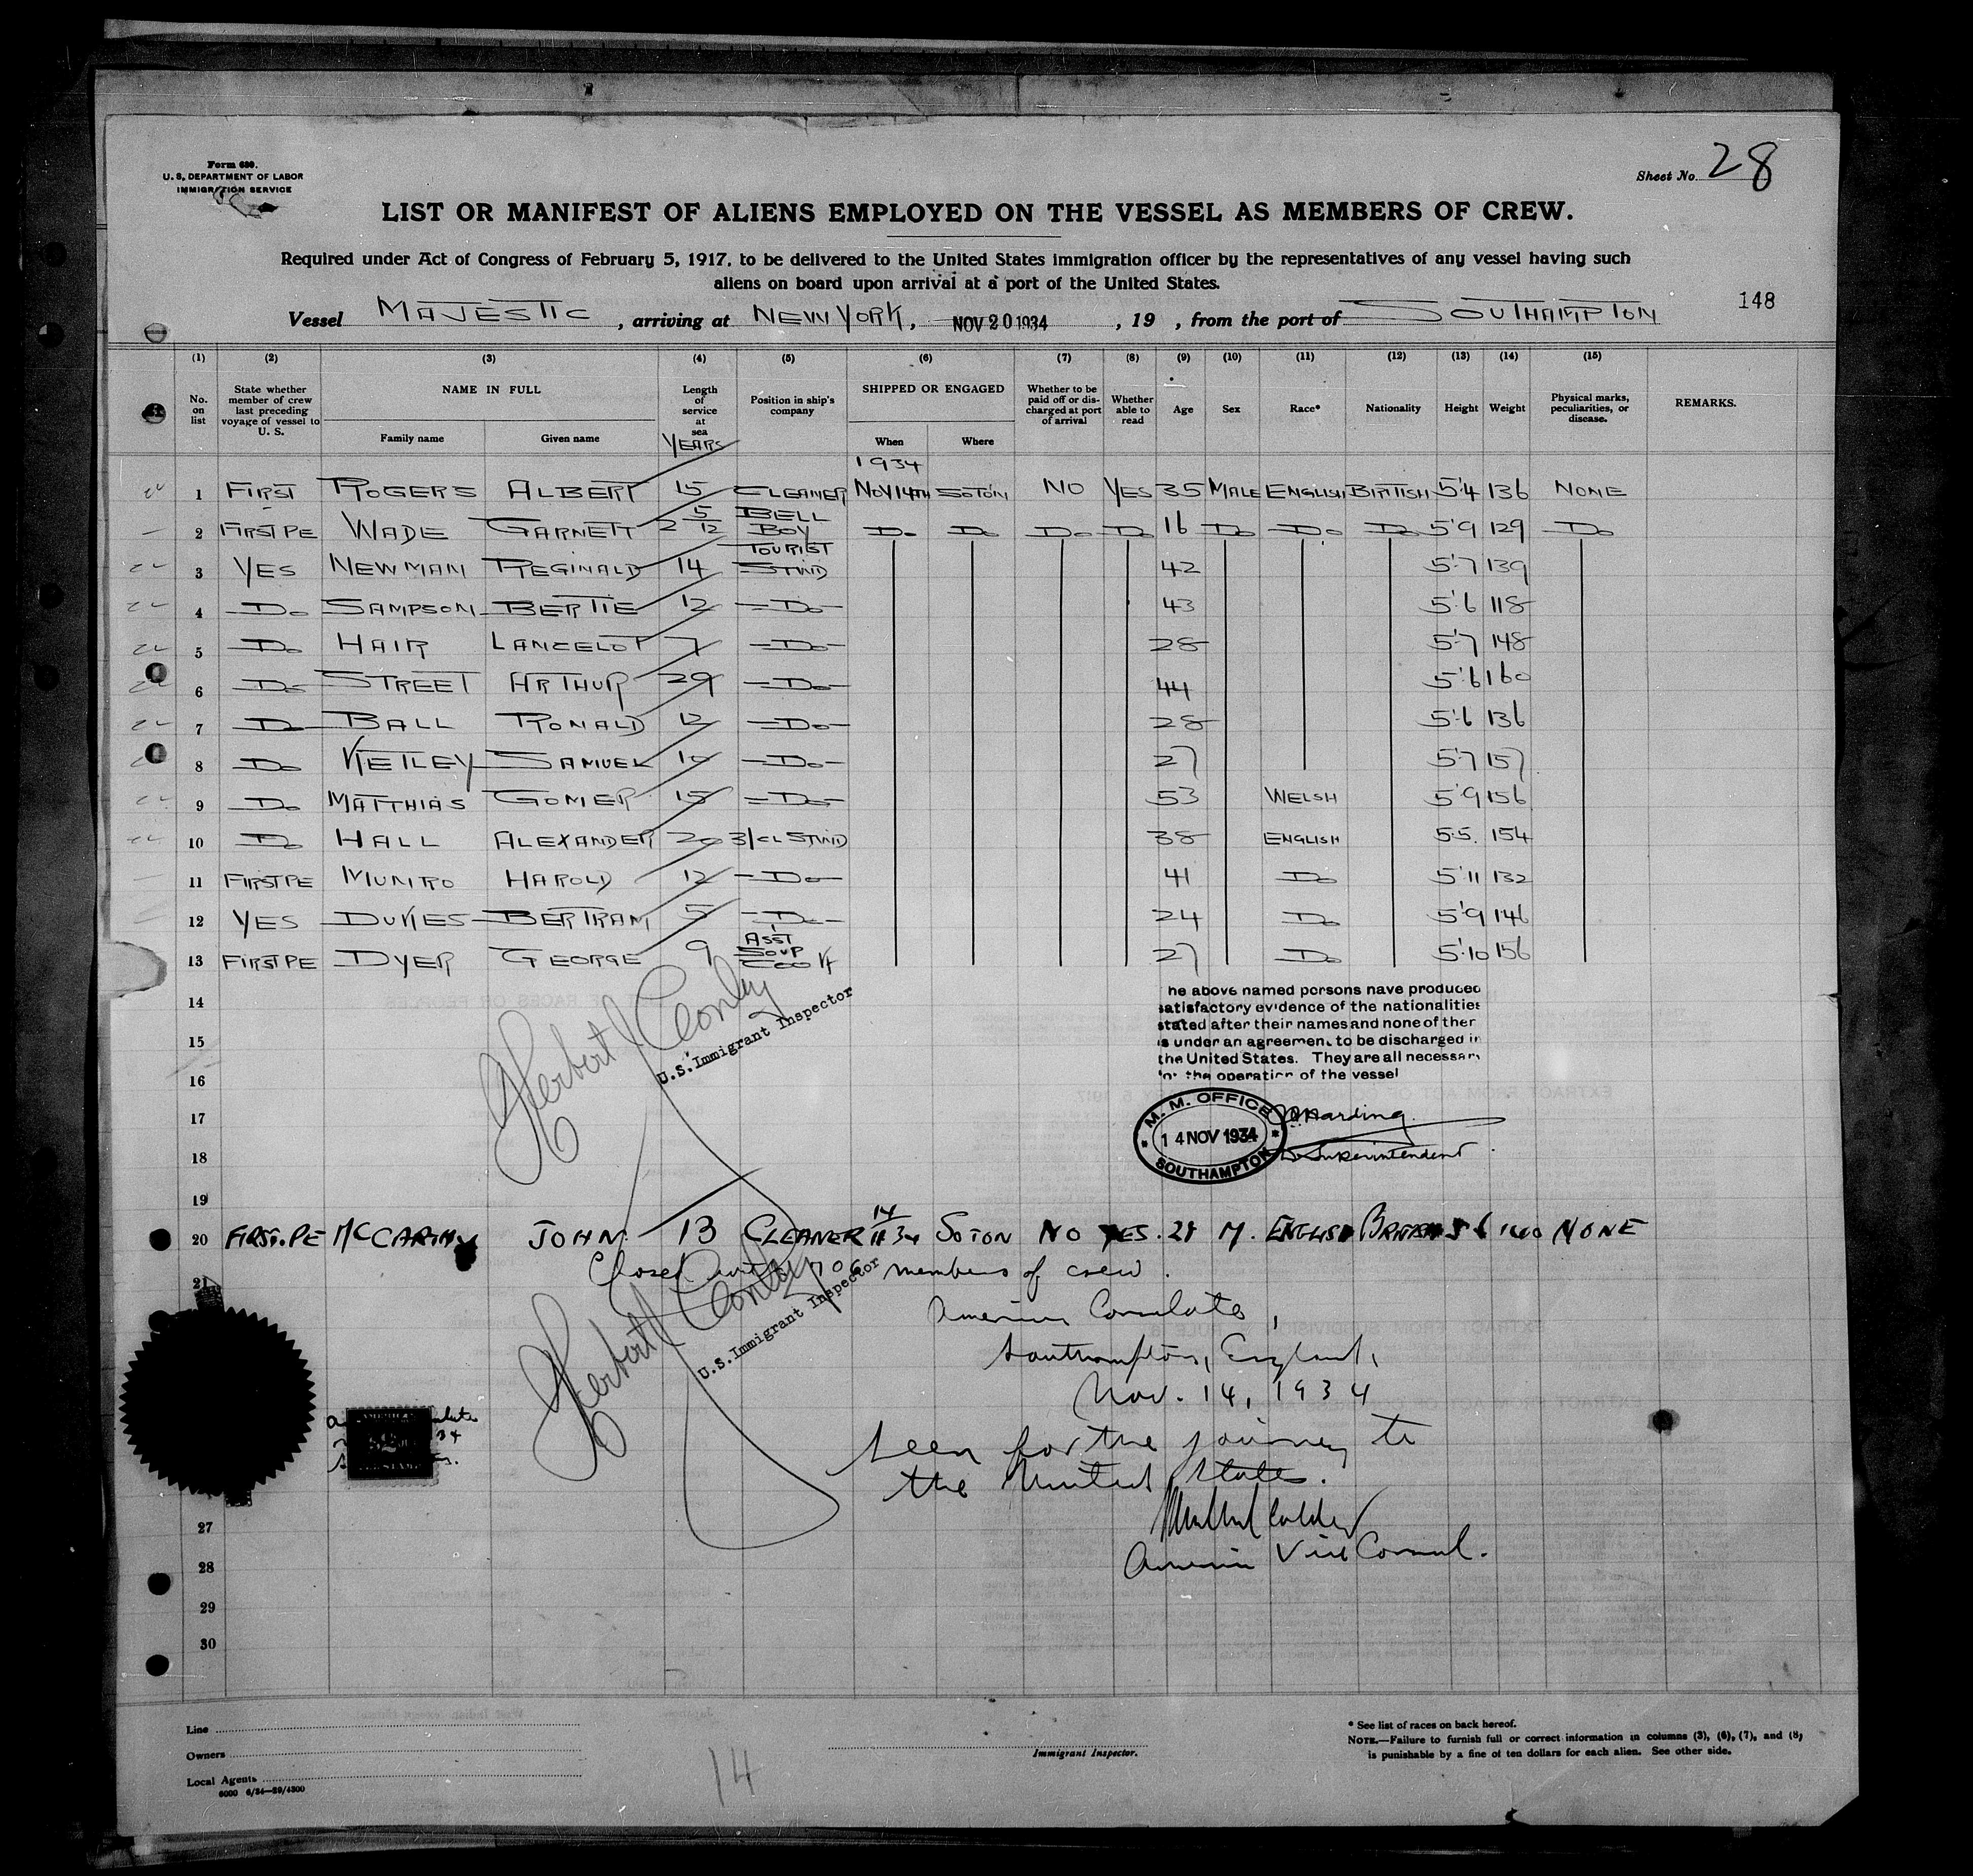 Form 680.
U. S. DEPARTMENT OF LABOR
IMMIGRATION SERVICE
Sheet No. 28
LIST OR MANIFEST OF ALIENS EMPLOYED ON THE VESSEL AS MEMBERS OF CREW.
Required under Act of Congress of February 5, 1917, to be delivered to the United States immigration officer by the representatives of any vessel having such
aliens on board upon arrival at a port of the United States.
148
Vessel MAJESTIC, arriving at NEW YORK, NOV 20 1934, 19 , from the port of SOUTHAMPTON
(1) (2) (3) (4) (5) (6) (7) (8) (9) (10) (11) (12) (13) (14) (15)
No. on list State whether member of crew last preceding voyage of vessel to U. S. NAME IN FULL Family name Given name Length of service at sea YEARS Position in ship's company SHIPPED OR ENGAGED When Where Whether to be paid off or discharged at port of arrival Whether able to read Age Sex Race* Nationality Height Weight Physical marks, peculiarities, or disease. REMARKS.
1934
1 FIRST ROGERS ALBERT 15 CLEANER NOV 14TH SOTON NO YES 35 MALE ENGLISH BRITISH 5'4 136 NONE
2 FIRST PE WADE GARNETT 2 5/12 BELL BOY Do Do Do Do 16 Do Do Do 5'9 129 Do
3 YES NEWMAN REGINALD 14 TOURIST STWD 42 5'7 139
4 Do SAMPSON BERTIE 12 Do 43 5'6 118
5 Do HAIR LANCELOT 7 Do 28 5'7 148
6 Do STREET ARTHUR 29 Do 44 5'6 160
7 Do BALL RONALD 12 Do 28 5'6 136
8 Do KETLEY SAMUEL 10 Do 27 5'7 157
9 Do MATTHIAS GOMER 15 Do 53 WELSH 5'9 156
10 Do HALL ALEXANDER 20 3/CL STWD 38 ENGLISH 5'5. 154
11 FIRST PE MUNRO HAROLD 12 Do 41 Do 5'11 132
12 YES DUKES BERTRAM 5 Do 24 Do 5'9 146
13 FIRST PE DYER GEORGE 9 ASST SOUP COOK 27 Do 5'10 156
14
15
16
17
18
19
he above named persons have produced
satisfactory evidence of the nationalities
stated after their names and none of ther
is under an agreement to be discharged in
the United States. They are all necessary
for the operation of the vessel
Herbert J Conly
U.S. Immigrant Inspector
M. M. OFFICE
14 NOV 1934
SOUTHAMPTON
Harding
Superintendent
20 FIRST. PE MCCARTHY JOHN 13 CLEANER 14/11 34 SOTON NO YES. 28 M. ENGLISH BRITISH 5 6 140 NONE
Closed with 706 members of crew.
21
Herbert J Conly
U.S. Immigrant Inspector
American Consulate,
Southampton, England,
Nov. 14, 1934
Seen for the journey to
the United States.
American Vice Consul.
27
28
29
30
Line
Owners
Local Agents
6000 6/34—29/4300
14
Immigrant Inspector.
* See list of races on back hereof.
NOTE.—Failure to furnish full or correct information in columns (3), (6), (7), and (8)
is punishable by a fine of ten dollars for each alien. See other side.